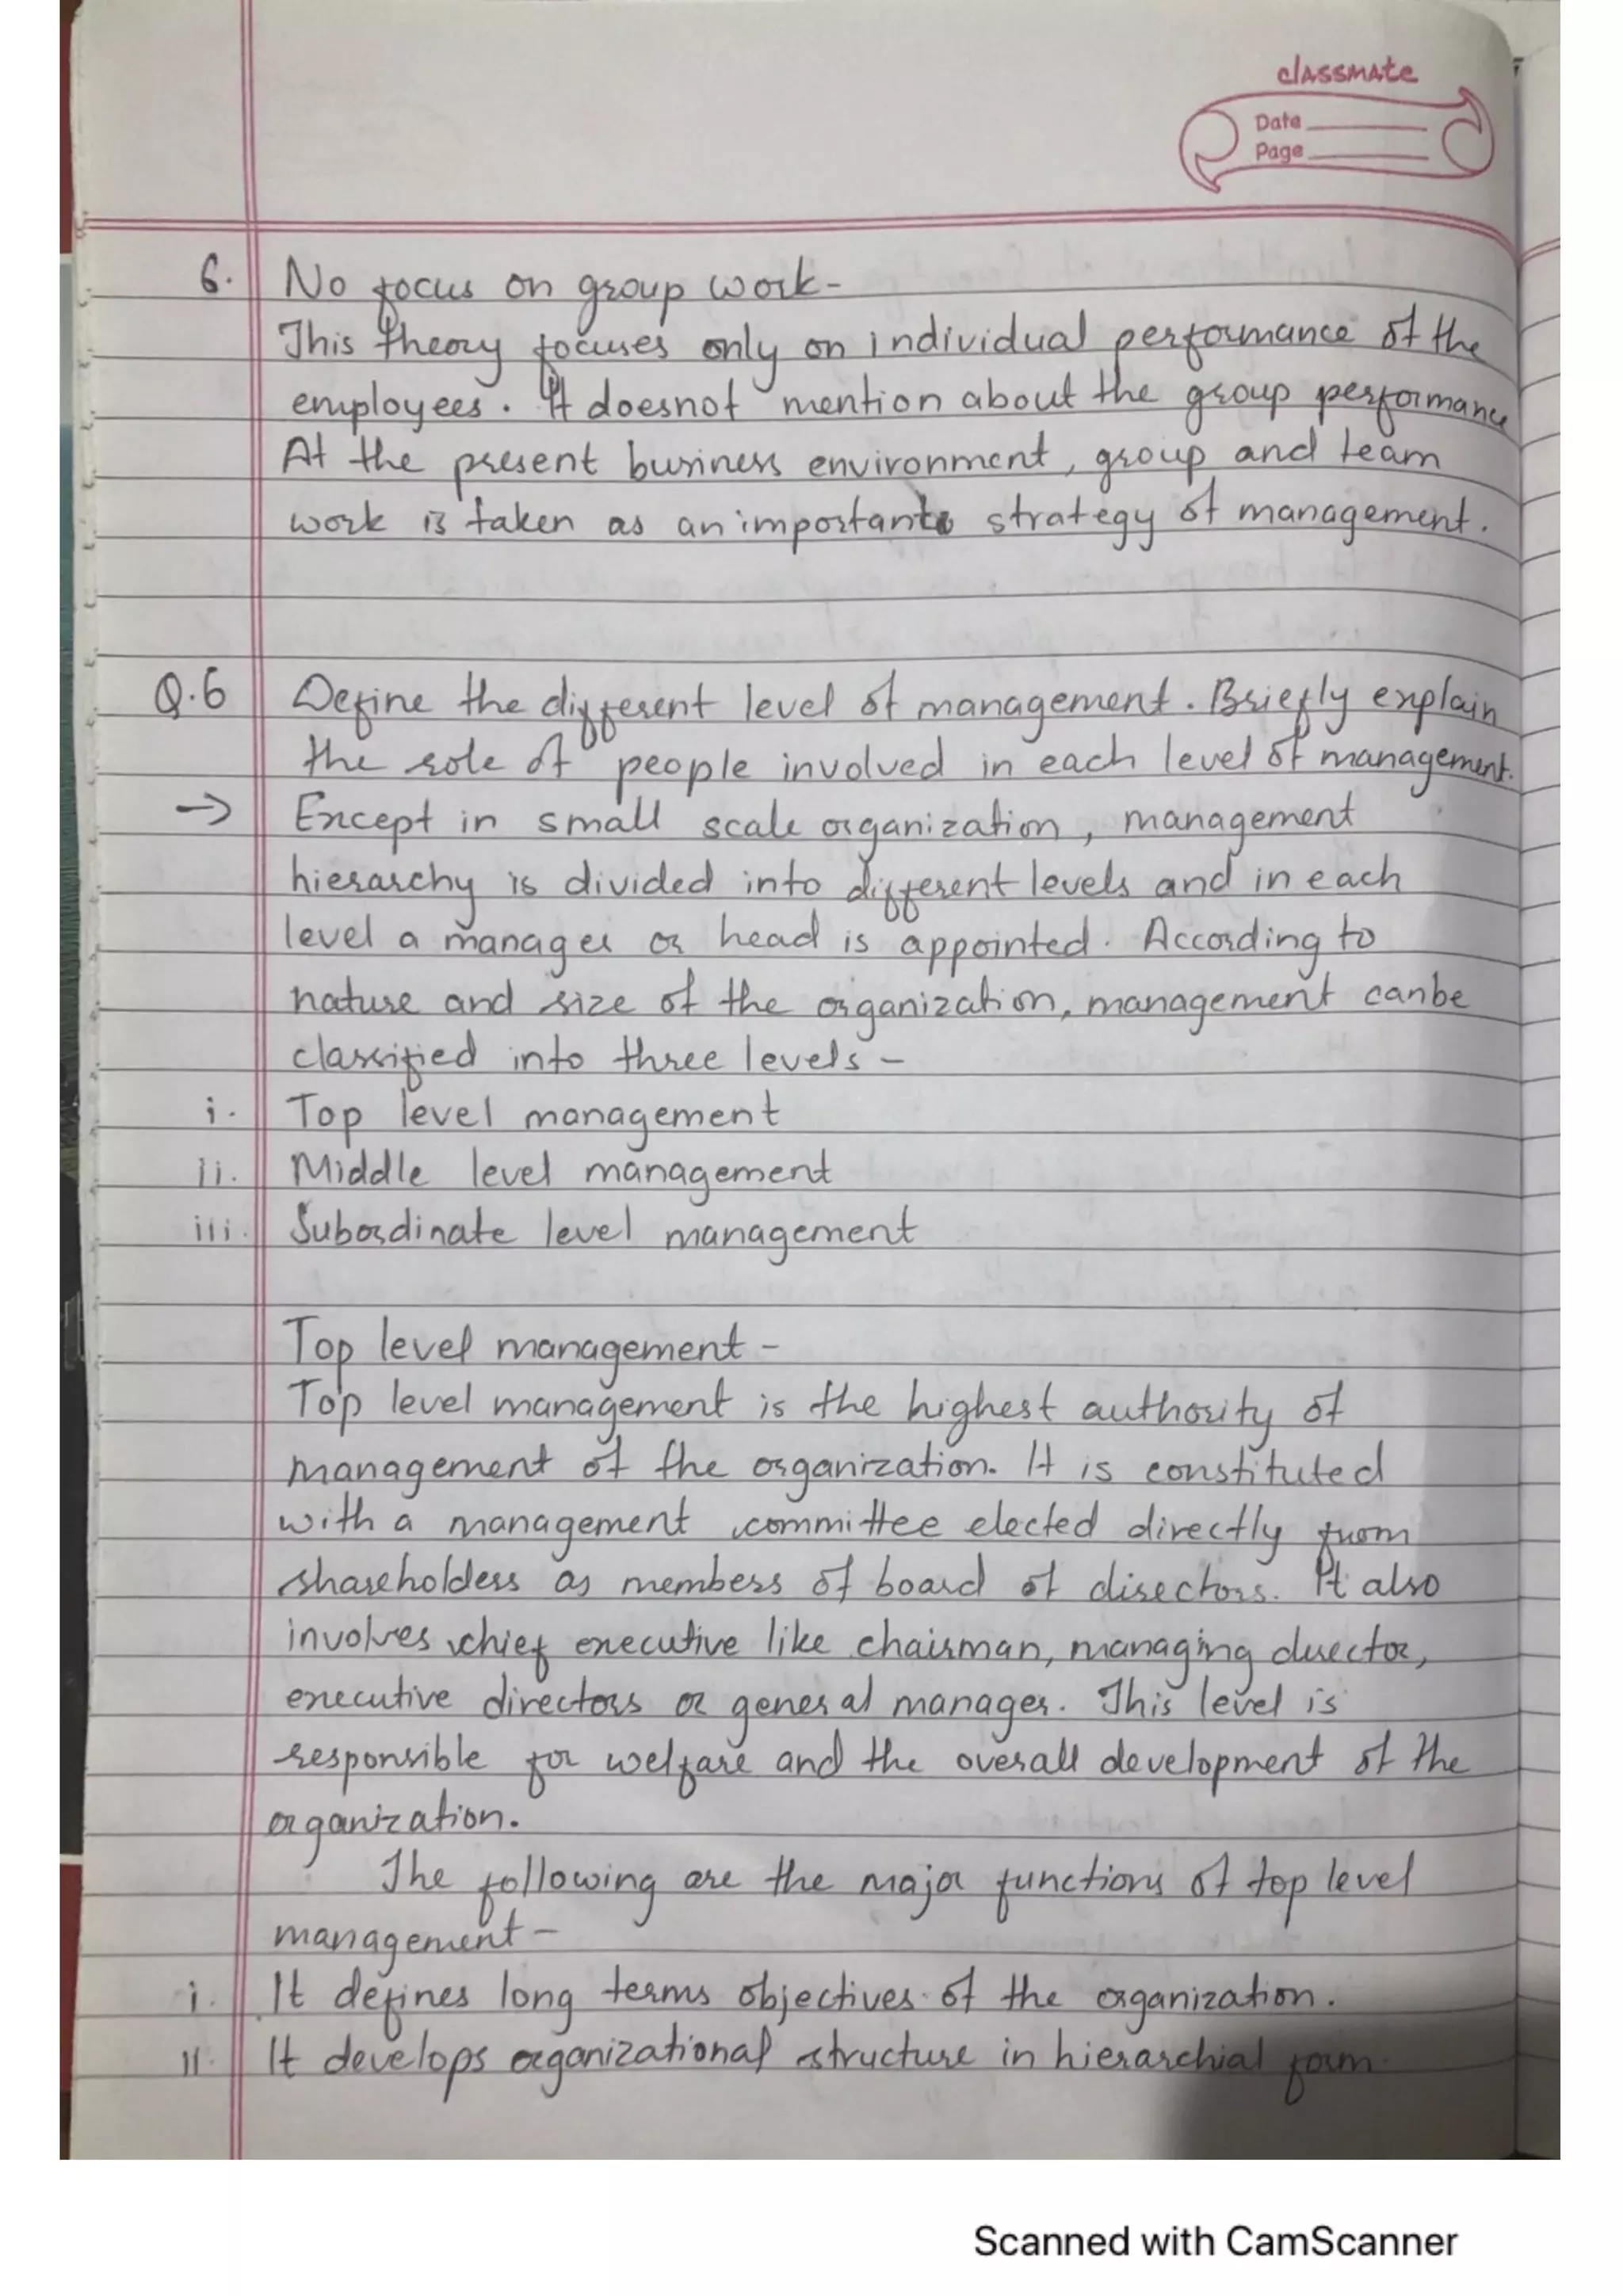 classmate
Date
Page
6. No focus on group work-
This theory focuses only on individual performance of the
employees. It doesnot mention about the group performance
At the present business environment, group and team
work is taken as an important strategy of management.
Q.6 Define the different level of management. Briefly explain
the role of people involved in each level of management.
→ Except in small scale organization, management
hierarchy is divided into different levels and in each
level a manager or head is appointed. According to
nature and size of the organization, management canbe
classified into three levels -
i. Top level management
ii. Middle level management
iii. Subordinate level management
Top level management -
Top level management is the highest authority of
management of the organization. It is constituted
with a management committee elected directly from
shareholders as members of board of directors. It also
involves chief executive like chairman, managing director,
executive directors or general manager. This level is
responsible for welfare and the overall development of the
organization.
The following are the major functions of top level
management -
i. It defines long terms objectives of the organization.
ii. It develops organizational structure in hierarchial form.
Scanned with CamScanner